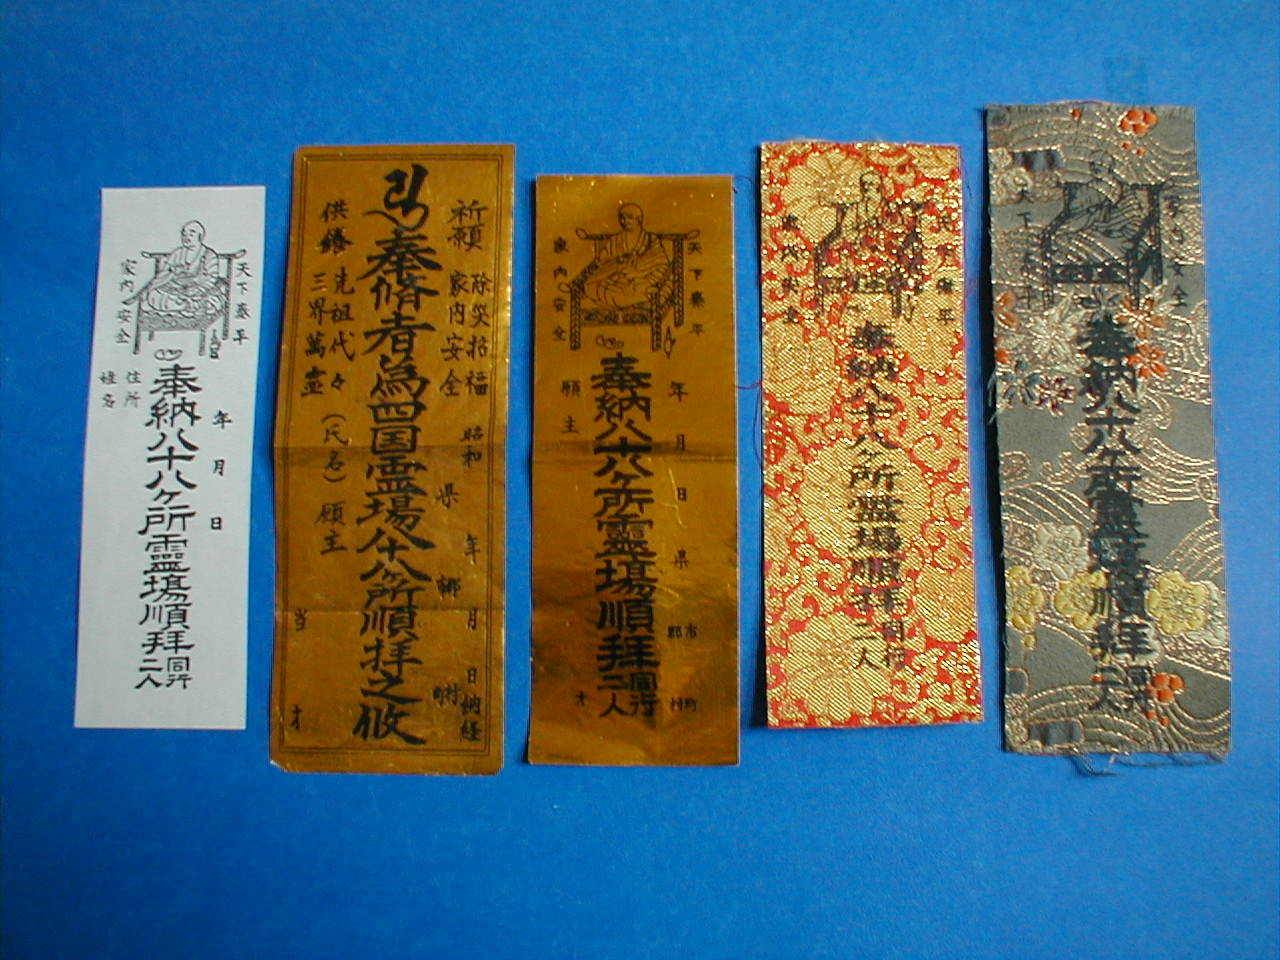 天下泰平
家内安全
奉納八十八ヶ所霊場順拝同行二人
年月日
住所
姓名
奉脩者為四国霊場八十八ヶ所順拝之攸
祈願
除災招福
家内安全
昭和 年 月 日納経
県 郷 村
供
先祖代々
三界萬霊
(氏名)願主
当 才
天下泰平
家内安全
奉納八十八ヶ所靈場順拜同行二人
年月日
県 市郡 町村
願主
才
家内安全
奉納八十八ヶ所霊場順拝同行二人
奉納八十八ヶ所霊場順拝同行二人